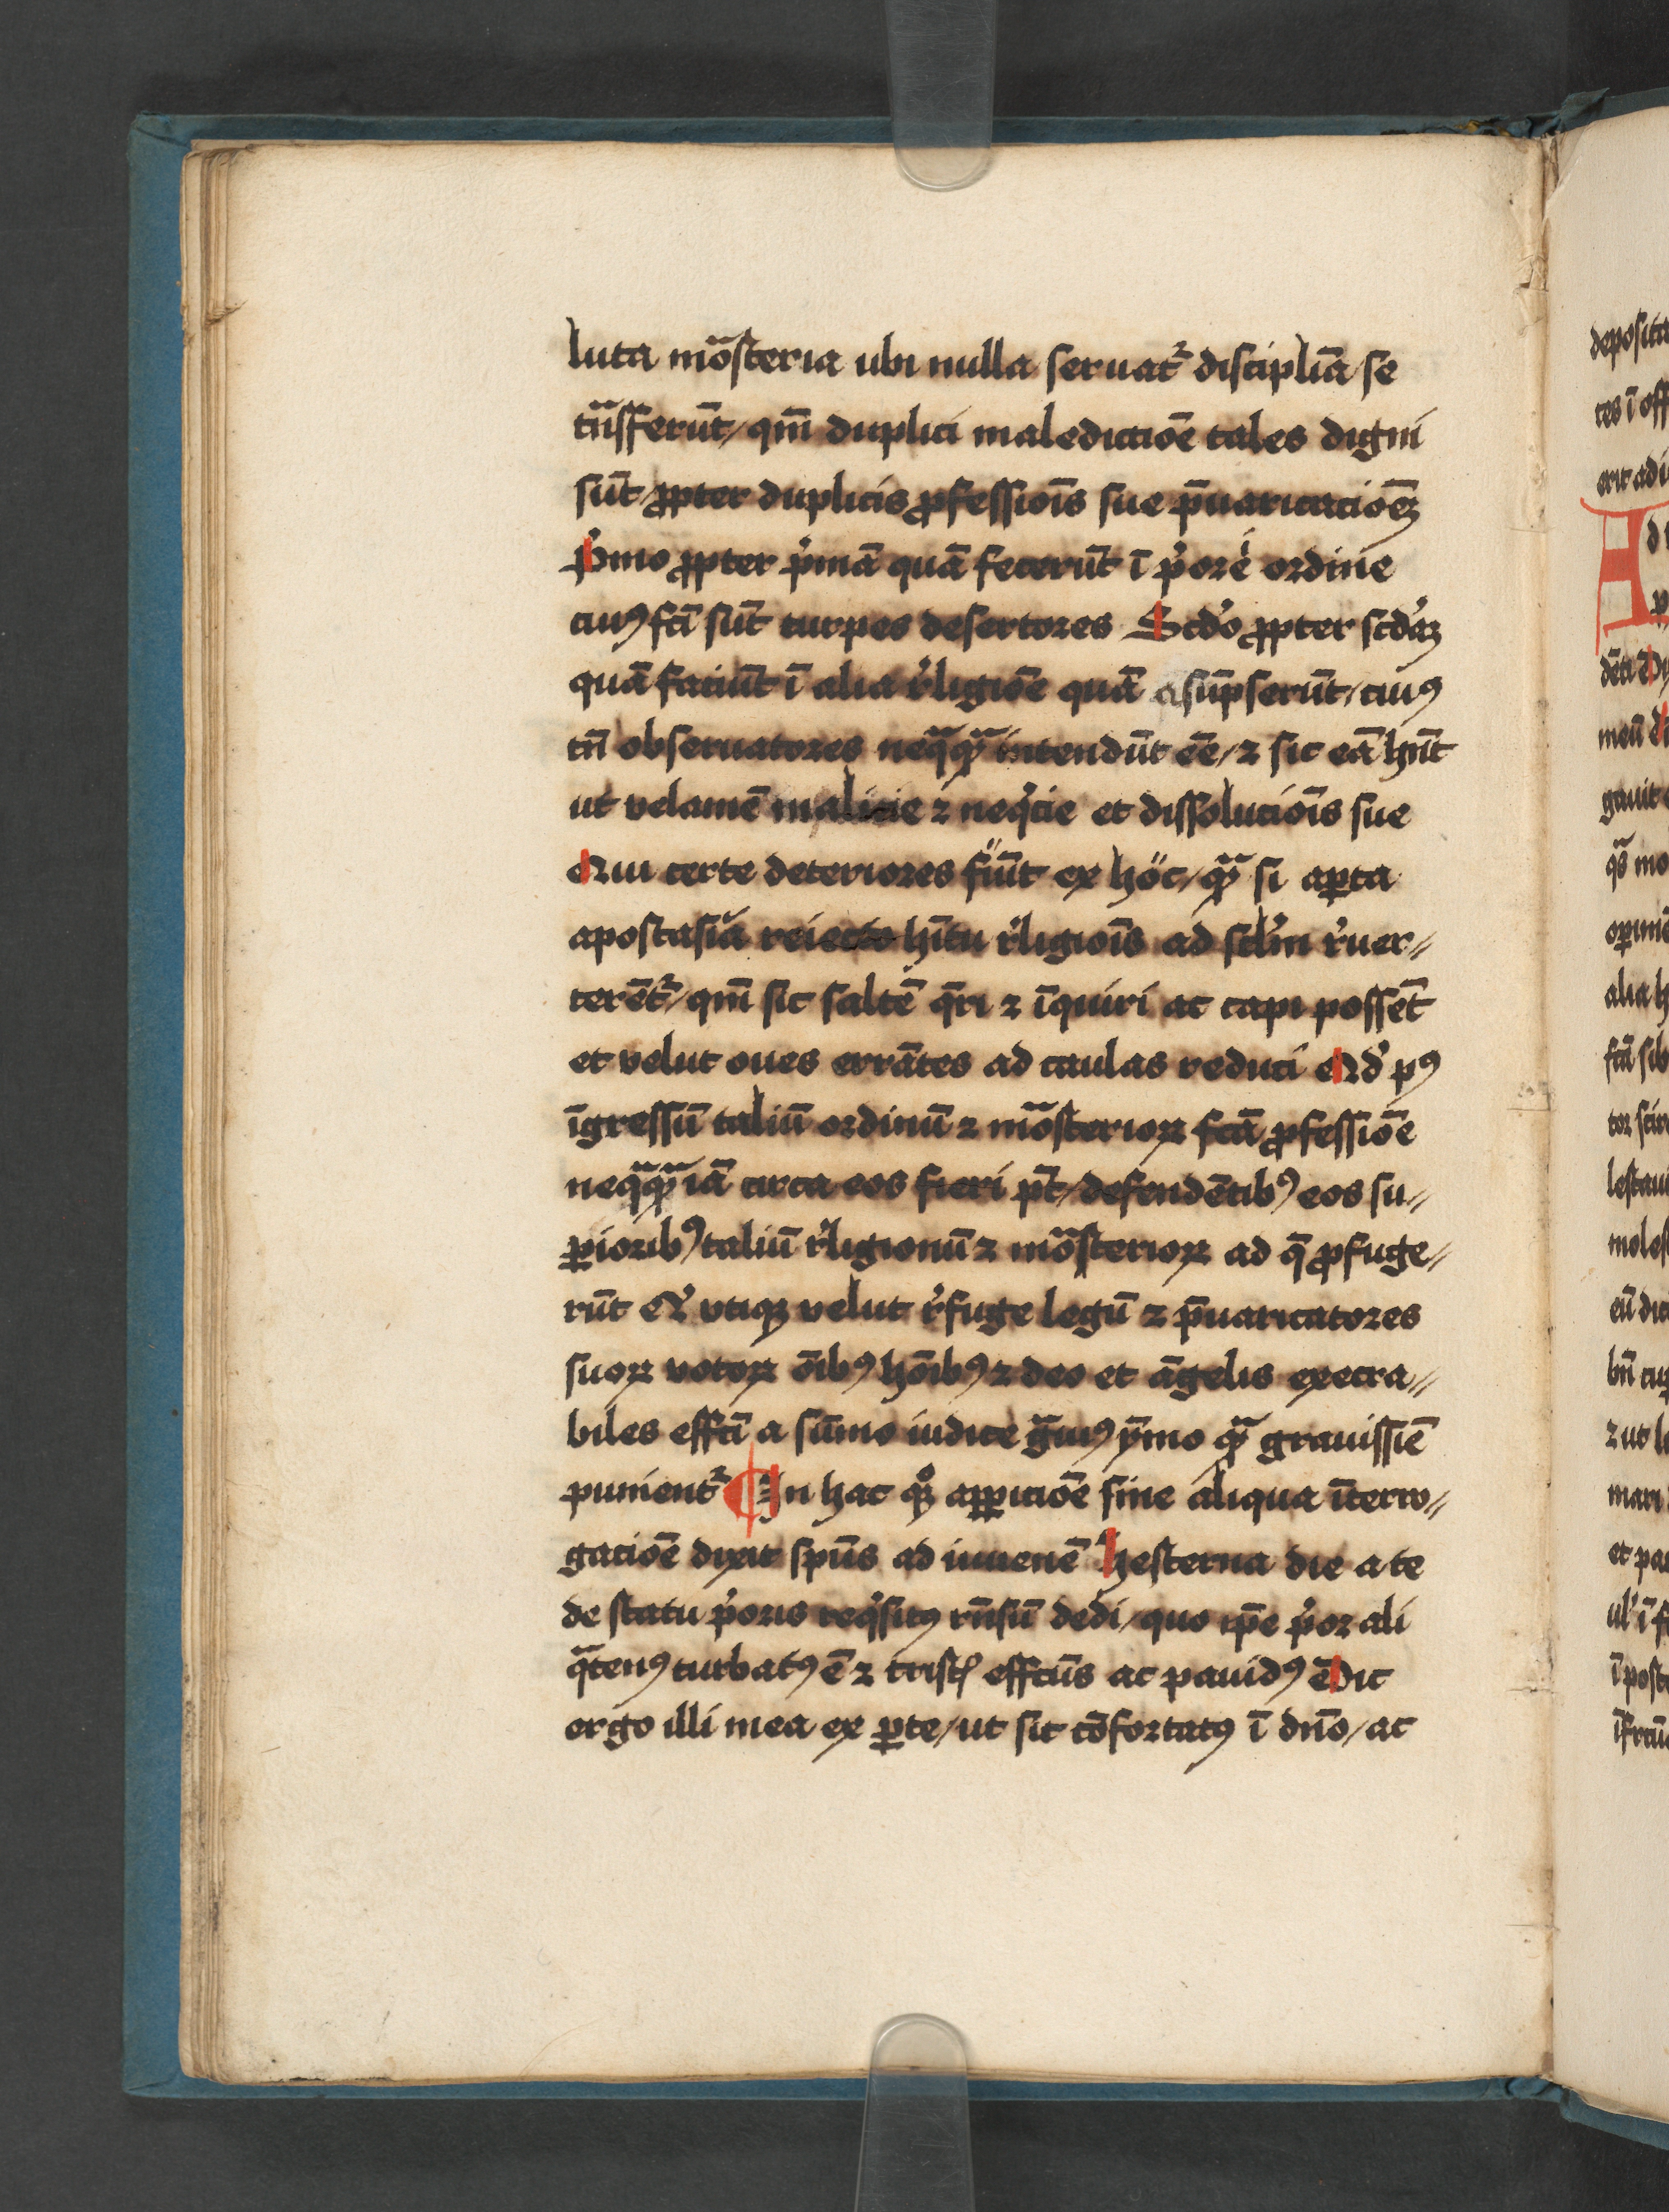 luta moᷓsteria ubi nulla seruat᷑ disciplīa / se
tnᷓsferūt / qm̄ duplici maledictiōe tales digni
sūt ꝓpter duplicis ꝓfessiōis sue p̄uaricaciōeꝫ
Pͥmo ꝓpter pͥmā quā fecerūt ī pͥore ordine
cuiꝰ fc̄i sūt turpes desertores Scdͦo ꝓpter scdͣꝫ
quā faciūt ī alia rͤligiōe quā asūpserūt / cuiꝰ
tn̄ obseruatores neqͣqͣꝫ intendūt ēe / ⁊ sic eā hn̄t
ut velamē malicie ⁊ neqͥcie et dissoluciōis sue
Qui certe deteriores fiūt ex hoc / qͣꝫ si aꝑta
apostasiā reiecto hītu rͤligiōis ad sclͥm rͤuer⸗
terēt᷑ / qm̄ sic saltē q̄ri ⁊ īquiri ac capi possēt
et velut oues errātes ad caulas reduci Qd̛ pꝰ
īgressū taliū ordinū ⁊ moᷓsterioꝝ fcā ꝓfessiōe
neqͣqͣꝫ iā circa eos fieri pt̄ / defendētibꝰ eos su⸗
ꝑioribꝰ taliū rͤligionū ⁊ moᷓsterioꝝ ad q̄ ꝓfuge⸗
rūt Et vtiqꝫ velut rͤfuge legū ⁊ p̄uaricatores
suoꝝ votoꝝ ōibꝰ hōibꝰ ⁊ deo et āgelis execra⸗
biles effc̄i a sūmo iudice gͣuiꝰ ymo qͣꝫ grauissīe
punient᷑ ¶ In hac qͦꝫ apꝑiciōe sine aliqua īterro⸗
gaciōe dixit spūs ad iuuenē Hesterna die a te
de statu pͥoris reqͥsitꝰ rn̄sū dedi / quo ip̄e pͥor ali
qͣtenꝰ turbatꝰ ē ⁊ tristꝭ effcūs ac pauidꝰ Dic
ergo illi mea ex ꝑte / ut sit cōfortatꝰ ī dn̄o / ac